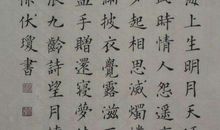 海上生明月天
此時情人怨遙
夕起相思滅燭
滿披衣覺露滋
盈手贈還寢夢
九齡詩望月
伏瓊書